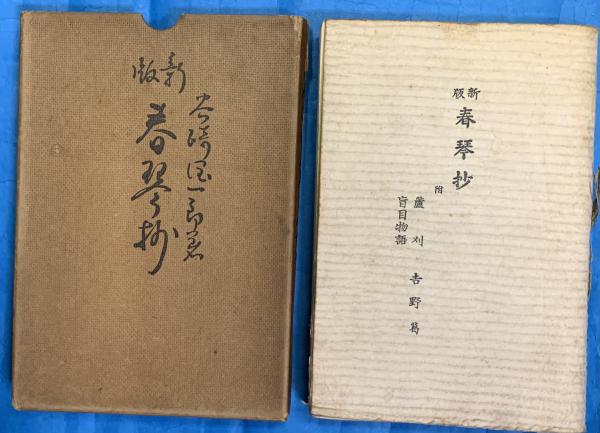 谷崎潤一郎著
新版
春琴抄
新版
春琴抄
附
蘆刈・吉野葛
盲目物語